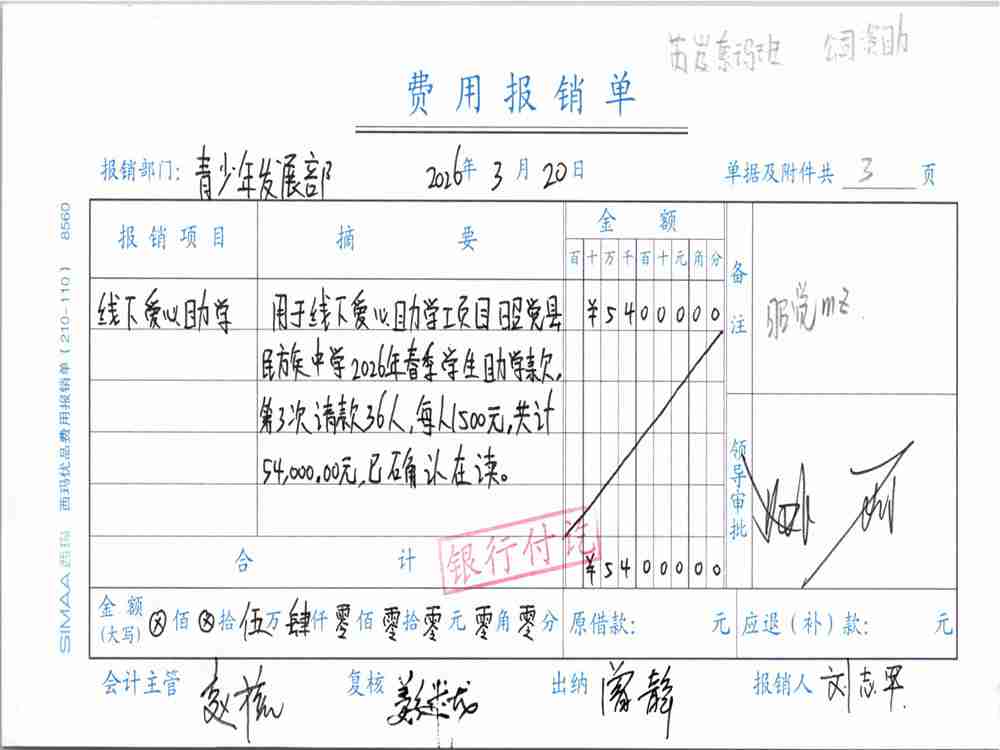 公司资助
费用报销单
报销部门: 青少年发展部 2026年 3月 20日 单据及附件共 3 页
报销项目 摘要 金额 备注
百十万千百十元角分
线下爱心助学 用于线下爱心助学项目昭觉县 ¥5400000
民族中学2026年春季学生助学款,
第3次请款36人,每人1500元,共计
54,000.00元,已确认在读。
领导审批
银行付讫
合计 ¥5400000
金额(大写) ⊗佰⊗拾伍万肆仟零佰零拾零元零角零分 原借款: 元 应退(补)款: 元
会计主管 复核 出纳 曾静 报销人 刘志军
SIMAA西玛 西玛优品费用报销单【210-110】 8560